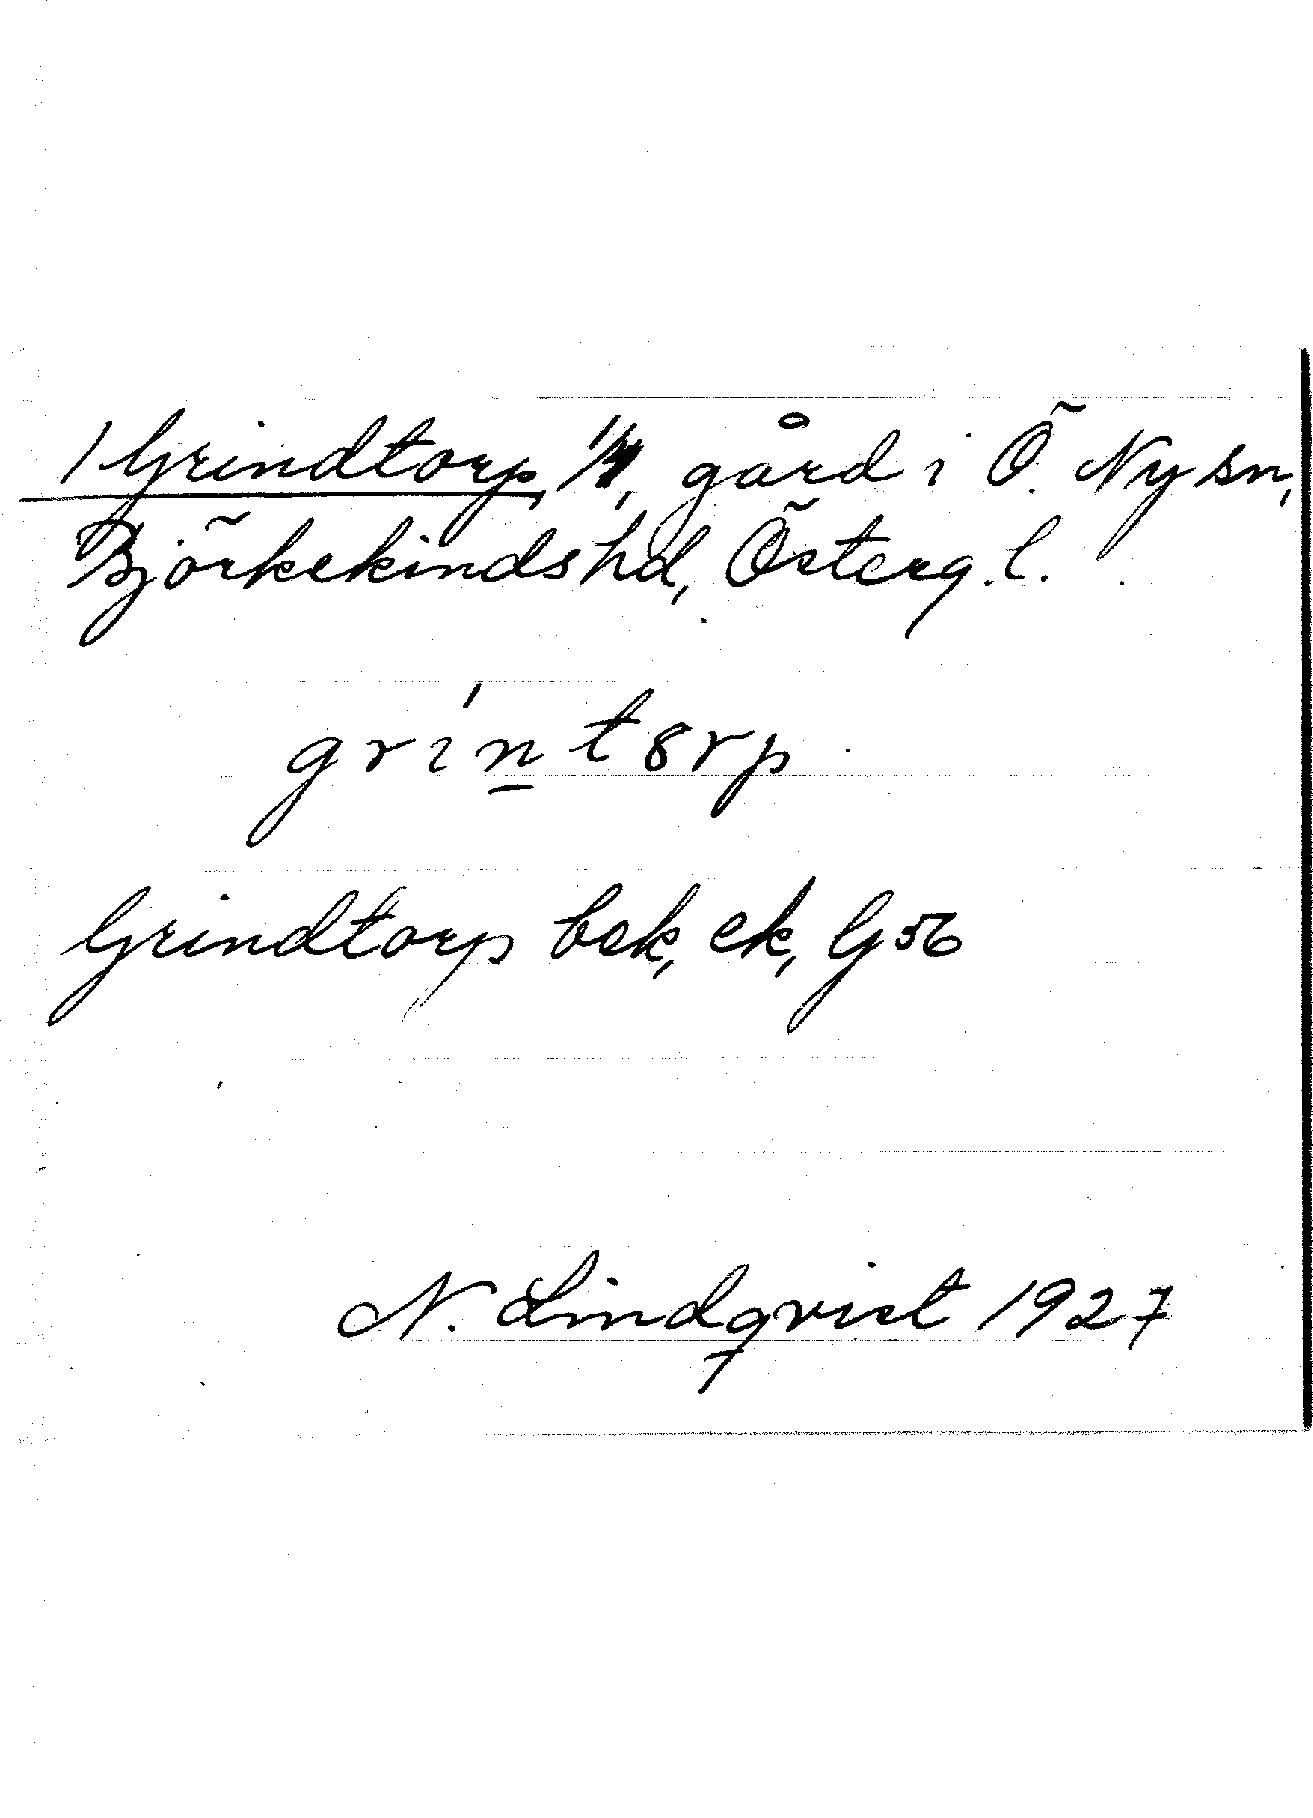 / Grindtorp, 1/4, gård i Ö. Ny sn,
Björkekinds hd, Österg. l.
gri'n̲t8rp
Grindtorp bek, ek, G56
N. Lindqvist 1927